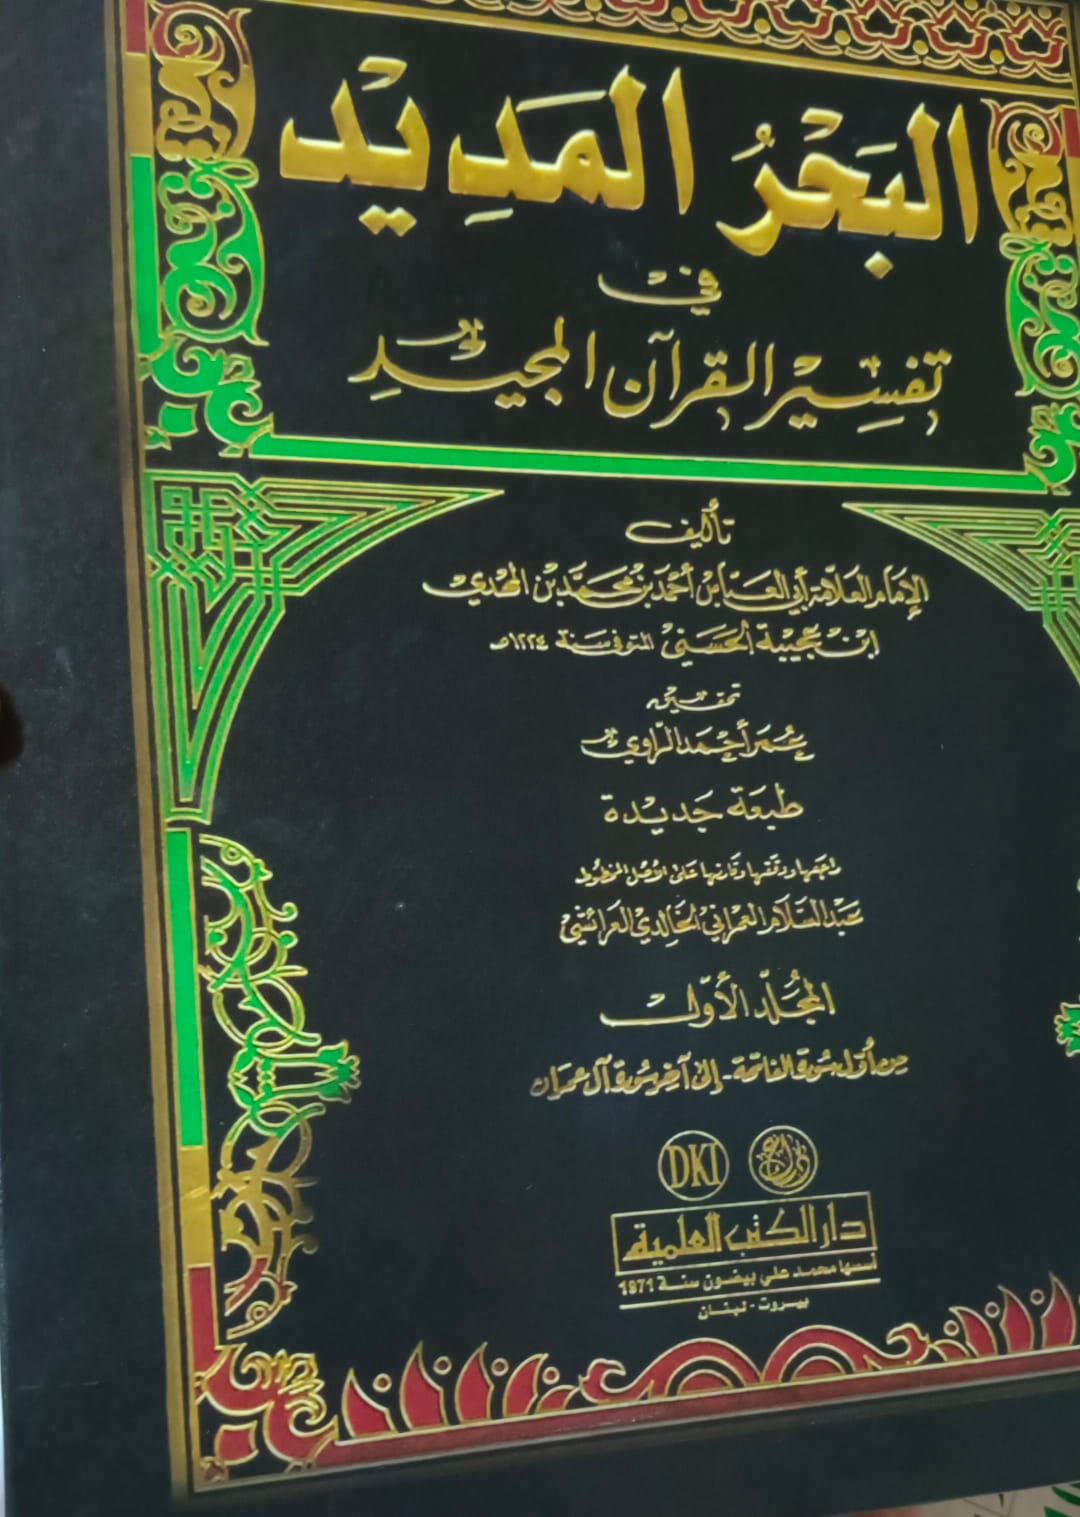 البَحْرُ المَدِيْد
في
تفسِير القرآن المجيد
تأليف
الإمَام العَلّامة أبي العَبَّاس أحمَد بن محمَّد بن المهدي
ابن عجيبة الحَسَني المتوفى سَنة ١٢٢٤ هـ
تحقيق
عُمَر أحمَد الرّاوي
طبعَة جَديدة
راجعَها ودققها وقارنها عَلى الأصل المخطوط
عَبد السَّلام العمراني الخالدي العرائشي
المجَلّد الأوّل
من أوّل سُورة الفاتحة - إلى آخر سُورة آل عمران
DKI
دار الكتب العلمية
أسسها محمد علي بيضون سنة 1971
بيروت - لبنان